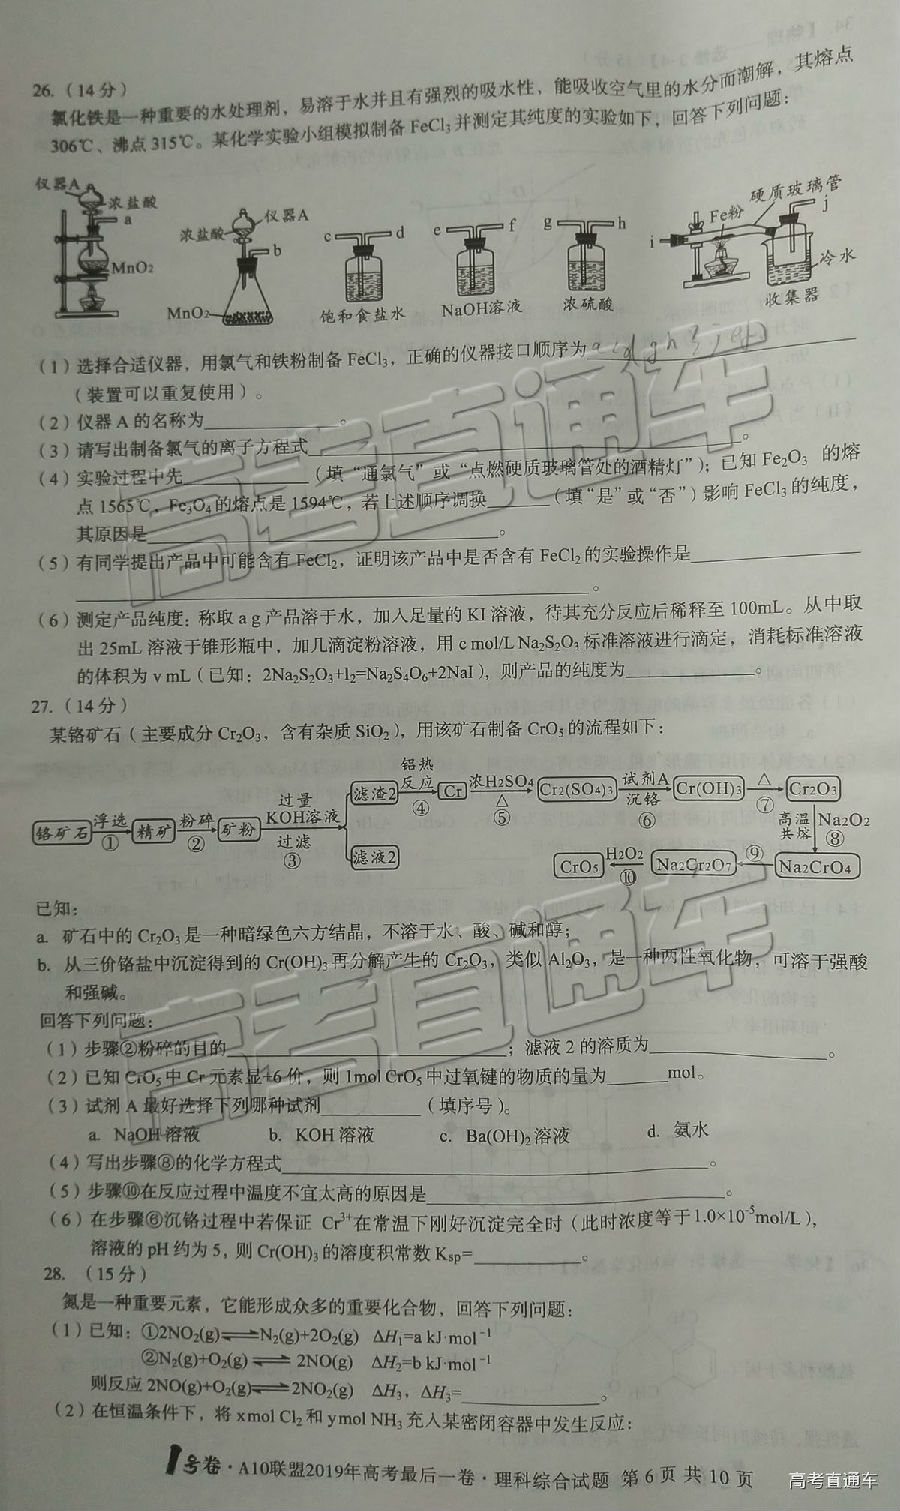 26.（14分）
氯化铁是一种重要的水处理剂，易溶于水并且有强烈的吸水性，能吸收空气里的水分而潮解，其熔点
306℃、沸点315℃。某化学实验小组模拟制备FeCl₃并测定其纯度的实验如下，回答下列问题：
仪器A 浓盐酸 a MnO₂
浓盐酸 仪器A b MnO₂
c d 饱和食盐水
e f NaOH溶液
g h 浓硫酸
i Fe粉 硬质玻璃管 j 冷水 收集器
（1）选择合适仪器，用氯气和铁粉制备FeCl₃，正确的仪器接口顺序为
（装置可以重复使用）。
（2）仪器A的名称为____________。
（3）请写出制备氯气的离子方程式____________。
（4）实验过程中先____________（填“通氯气”或“点燃硬质玻璃管处的酒精灯”）；已知Fe₂O₃ 的熔
点1565℃，Fe₃O₄的熔点是1594℃，若上述顺序调换______（填“是”或“否”）影响FeCl₃的纯度，
其原因是____________。
（5）有同学提出产品中可能含有FeCl₂，证明该产品中是否含有FeCl₂的实验操作是____________
____________。
（6）测定产品纯度：称取a g产品溶于水，加入足量的KI溶液，待其充分反应后稀释至100mL。从中取
出25mL溶液于锥形瓶中，加几滴淀粉溶液，用c mol/L Na₂S₂O₃标准溶液进行滴定，消耗标准溶液
的体积为v mL（已知：2Na₂S₂O₃+I₂=Na₂S₄O₆+2NaI），则产品的纯度为____________。
27.（14分）
某铬矿石（主要成分Cr₂O₃，含有杂质SiO₂），用该矿石制备CrO₅的流程如下：
铬矿石 浮选 ① 精矿 粉碎 ② 矿粉 过量KOH溶液 过滤 ③ 滤渣2 铝热反应 ④ Cr 浓H₂SO₄ △ ⑤ Cr₂(SO₄)₃ 试剂A 沉铬 ⑥ Cr(OH)₃ △ ⑦ Cr₂O₃
滤液2 CrO₅ H₂O₂ ⑩ Na₂Cr₂O₇ ⑨ Na₂CrO₄ 高温共熔 Na₂O₂ ⑧
已知：
a. 矿石中的Cr₂O₃是一种暗绿色六方结晶，不溶于水、酸、碱和醇；
b. 从三价铬盐中沉淀得到的Cr(OH)₃再分解产生的Cr₂O₃，类似Al₂O₃，是一种两性氧化物，可溶于强酸
和强碱。
回答下列问题：
（1）步骤②粉碎的目的____________；滤液2的溶质为____________。
（2）已知CrO₅中Cr元素显+6价，则1mol CrO₅中过氧键的物质的量为______mol。
（3）试剂A最好选择下列哪种试剂__________（填序号）。
a. NaOH溶液 b. KOH溶液 c. Ba(OH)₂溶液 d. 氨水
（4）写出步骤⑧的化学方程式____________。
（5）步骤⑩在反应过程中温度不宜太高的原因是____________。
（6）在步骤⑥沉铬过程中若保证 Cr³⁺在常温下刚好沉淀完全时（此时浓度等于1.0×10⁻⁵mol/L），
溶液的pH约为5，则Cr(OH)₃的溶度积常数Ksp=____________。
28.（15分）
氮是一种重要元素，它能形成众多的重要化合物，回答下列问题：
（1）已知：①2NO₂(g)⇌N₂(g)+2O₂(g) ΔH₁=a kJ·mol⁻¹
②N₂(g)+O₂(g)⇌2NO(g) ΔH₂=b kJ·mol⁻¹
则反应2NO(g)+O₂(g)⇌2NO₂(g) ΔH₃，ΔH₃=____________。
（2）在恒温条件下，将xmol Cl₂和ymol NH₃充入某密闭容器中发生反应：
1号卷·A10联盟2019年高考最后一卷·理科综合试题 第6页 共10页
高考直通车
高考直通车
高考直通车